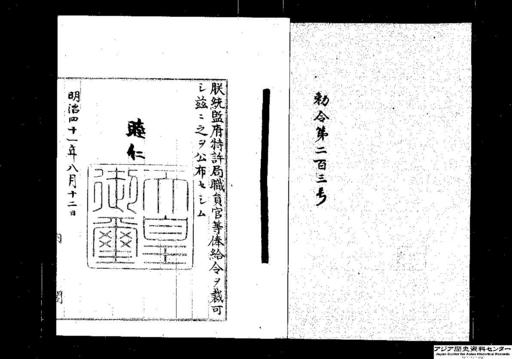 勅令第二百三号
朕統監府特許局職員官等俸給令ヲ裁可
シ玆ニ之ヲ公布セシム
睦仁
天皇
御璽
明治四十一年八月十二日
内閣
アジア歴史資料センター
Japan Center for Asian Historical Records